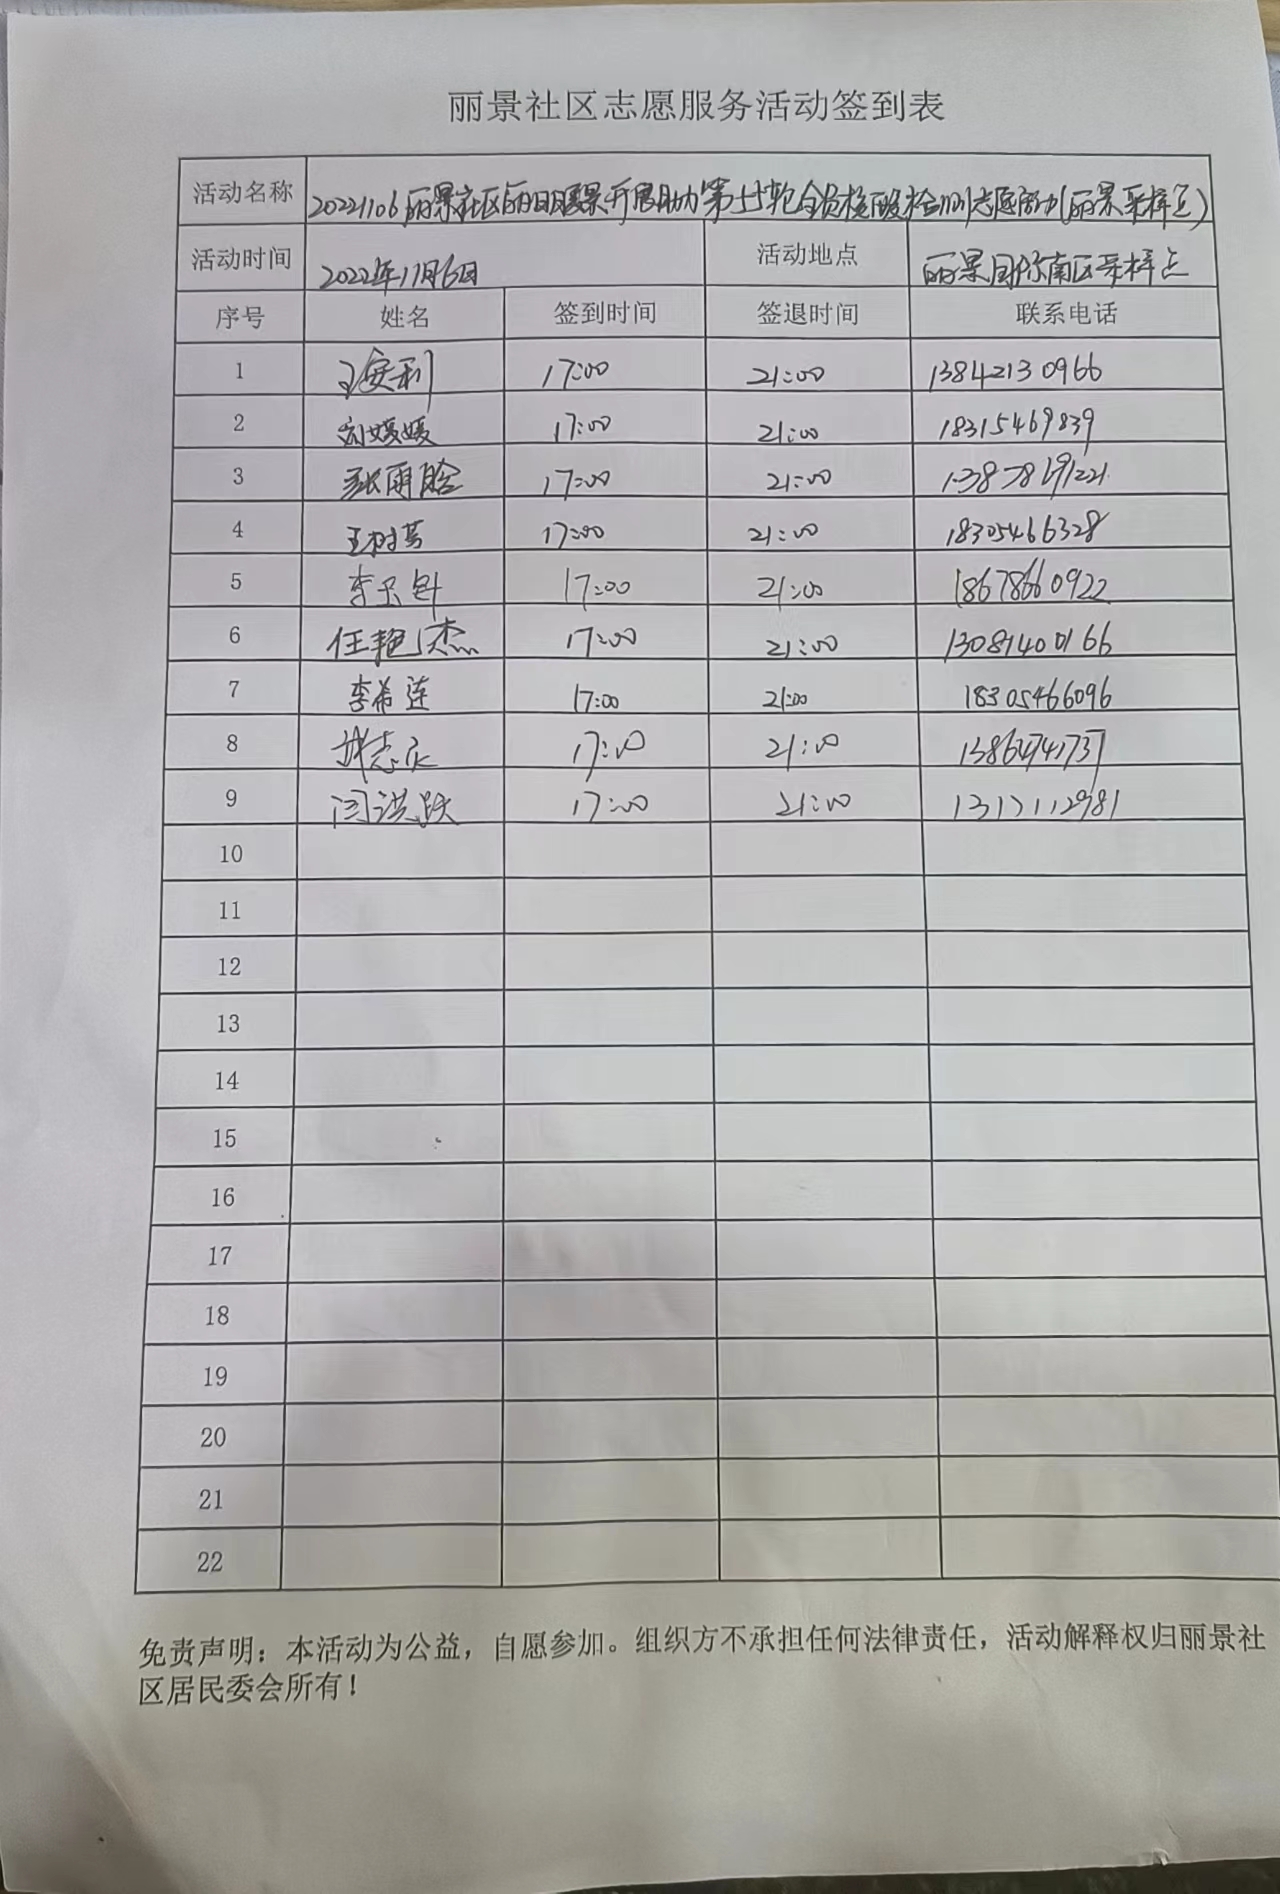 丽景社区志愿服务活动签到表
活动名称 20221106丽景社区丽日暖景开展助力第55轮全员核酸检测志愿活动(丽景采样点)
活动时间 2022年11月6日 活动地点 丽景国际南区采样点
序号 姓名 签到时间 签退时间 联系电话
1 王安利 17:00 21:00 13842130966
2 刘媛媛 17:00 21:00 18315469839
3 张雨晗 17:00 21:00
4 王树芳 17:00 21:00 18305466328
5 李玉 17:00 21:00 18678660922
6 任艳杰 17:00 21:00
7 李希莲 17:00 21:00 18305466096
8 志 17:00 21:00
9 闫洪跃 17:00 21:00
10
11
12
13
14
15
16
17
18
19
20
21
22
免责声明：本活动为公益，自愿参加。组织方不承担任何法律责任，活动解释权归丽景社
区居民委会所有！